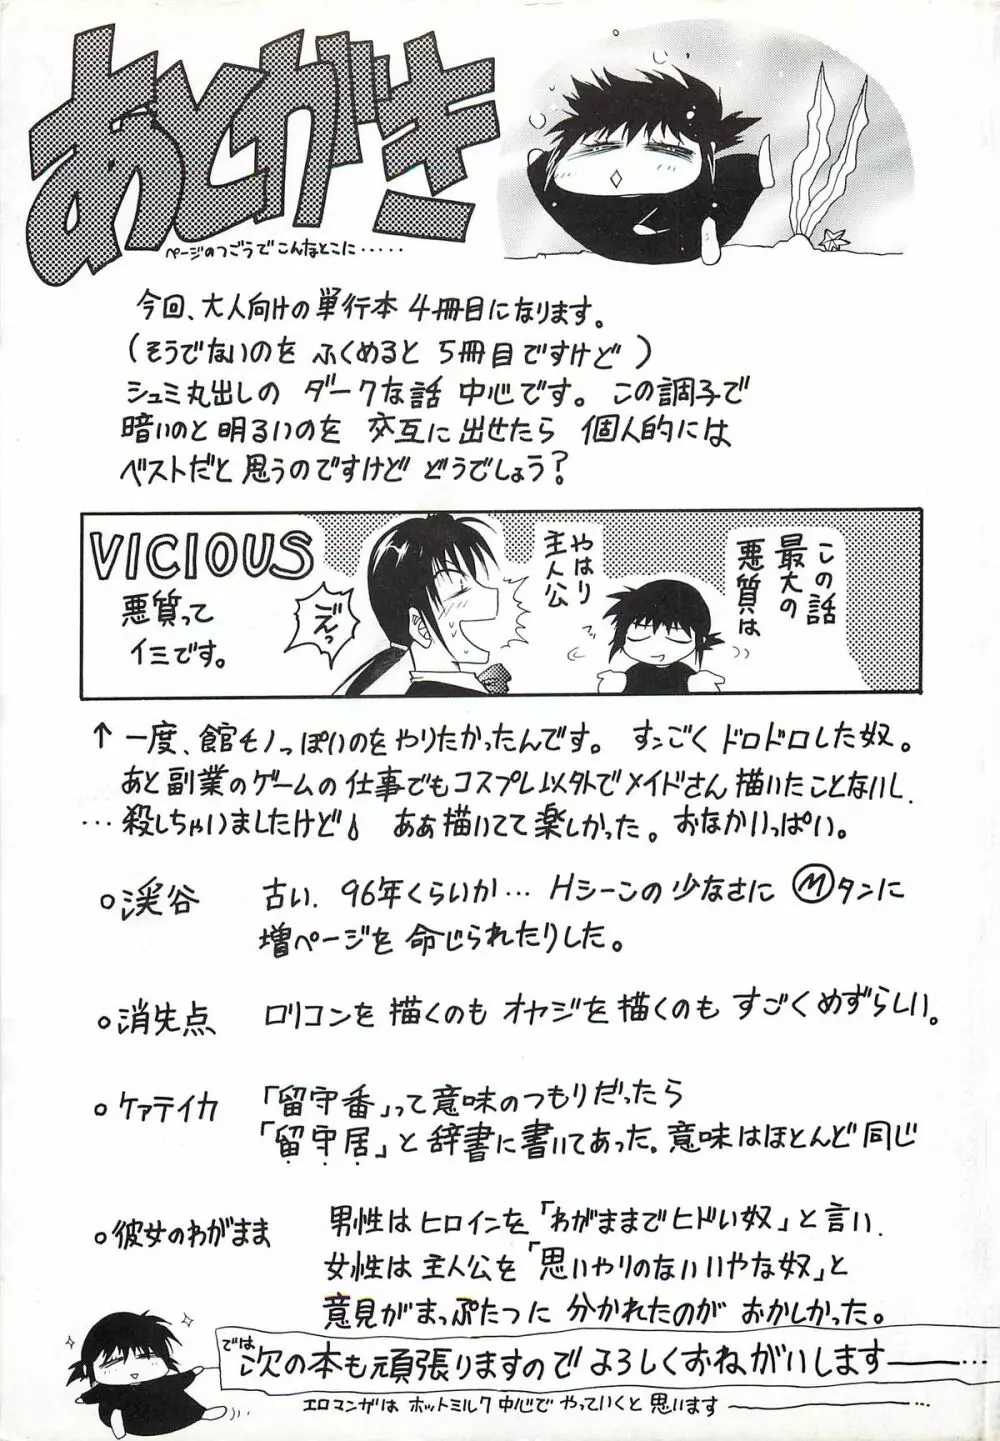 あとがき
ページのつごうでこんなとこに・・・・・
今回、大人向けの単行本 4冊目になります。
(そうでないのを ふくめると 5冊目ですけど)
シュミ丸出しの ダークな話 中心です。この調子で
暗いのと 明るいのを 交互に 出せたら 個人的には
ベストだと 思うのですけど どうでしょう?
VICIOUS
悪質って
イミです。
この話
最大の
悪質は
やはり
主人公
↑ 一度、館モノっぽいのを やりたかったんです。 すンごく ドロドロした奴。
あと 副業のゲームの仕事でもコスプレ以外でメイドさん 描いたことないし.
・・・殺しちゃいましたけど ああ描いてて 楽しかった。 おなかいっぱい。
○渓谷 古い. 96年くらいか… Hシーンの 少なさに Ⓜタンに
増ページを 命じられたりした。
○消失点 ロリコンを 描くのも オヤジを 描くのも すごくめずらしい。
○ケァテイカ 「留守番」って意味のつもりだったら
「留守居」と 辞書に書いてあった。意味はほとんど 同じ
○彼女のわがまま 男性は ヒロインを「わがままでヒドい奴」と言い.
女性は 主人公を「思いやりのない いやな奴」と
意見が まっぷたつに 分かれたのが おかしかった。
では
次の本も 頑張りますので よろしくおねがいします―――…
エロマンガは ホットミルク 中心で やっていくと 思います―――…